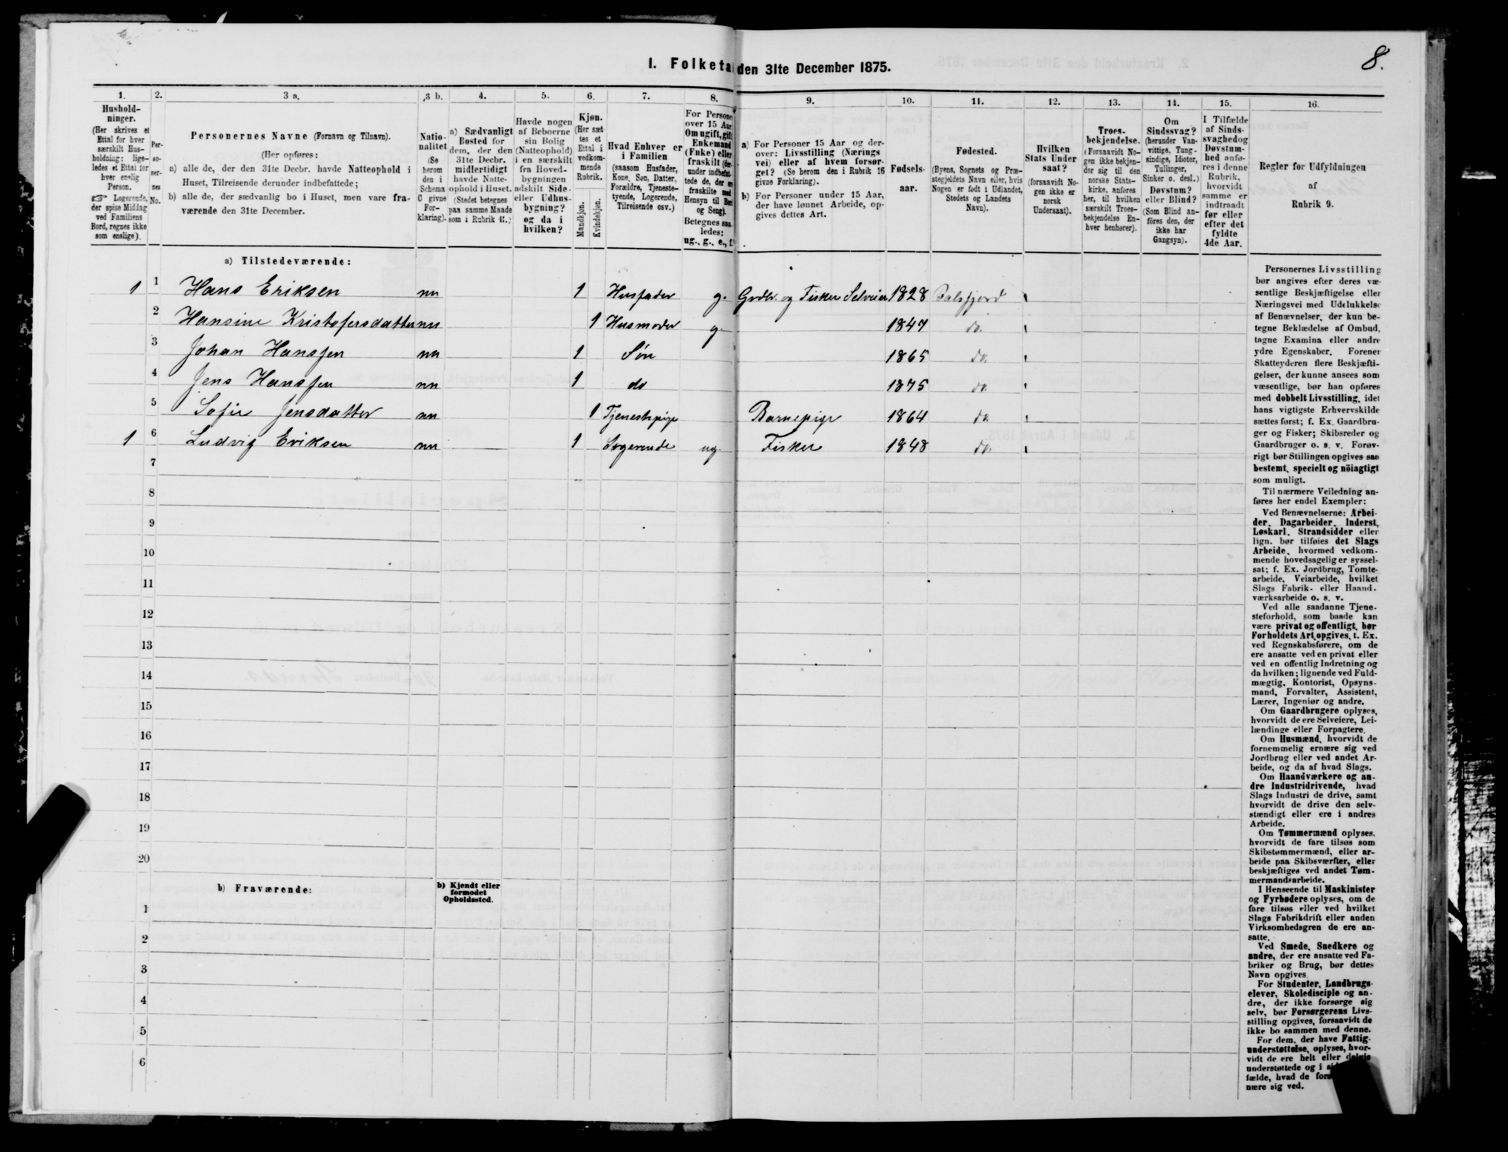 8.
I. Folketa den 31te December 1875.
1. 2. 3 a. 3 b. 4. 5. 6. 7. 8. 9. 10. 11. 12. 13. 14. 15. 16.
Hushold-
ninger.
(Her skrives et
Ettal for hver
særskilt Hus-
holdning; lige-
ledes et Ettal for
hver enslig
Person.
☞ Logerende,
der spise Middag
ved Familiens
Bord, regnes ikke
som enslige).
Per-
so-
ner-
nes
No.
Personernes Navne (Fornavn og Tilnavn).
(Her opføres:
a) alle de, der den 31te Decbr. havde Natteophold i
Huset, Tilreisende derunder indbefattede;
b) alle de, der sædvanlig bo i Huset, men vare fra-
værende den 31te December.
Natio-
nalitet
(Se
herom
den i
Schema
C givne
For-
klaring).
a) Sædvanligt
Bosted for
dem, der den
31te Decbr.
midlertidigt
havde Natte-
ophold i Huset.
(Stedet betegnes
paa samme Maade
som i Rubrik 11.)
Havde nogen
af Beboerne
sin Bolig
(Natteophold)
i en særskilt
fra Hoved-
bygningen
adskilt Side-
eller Udhus-
bygning?
og da i
hvilken?
Kjøn.
(Her sæt-
tes et
Ettal i
vedkom-
mende
Rubrik.
Mandkjøn.
Kvindekjøn.
Hvad Enhver er
i Familien
(saasom Husfader,
Kone, Søn, Datter,
Forældre, Tjeneste-
tyende, Logerende,
Tilreisende osv.)
For Persone
over 15 Aar
Om ugift, gift
Enkemand
(Enke) eller
fraskilt (der-
under indbefat-
tede de, der
fraskilte med
Hensyn til Bor
og Seng).
Betegnes saa-
ledes:
ug., g., e., f.
a) For Personer 15 Aar og der-
over: Livsstilling (Nærings
vei) eller af hvem forsør-
get? (Se herom den i Rubrik 16
givne Forklaring).
b) For Personer under 15 Aar,
der have lønnet Arbeide, op-
gives dettes Art.
Fødsels-
aar.
Fødested.
(Byens, Sognets og Præ-
stegjeldets Navn eller, hvis
Nogen er født i Udlandet,
Stedets og Landets
Navn).
Hvilken
Stats Under
saat?
(forsaavidt No-
gen ikke er
norsk
Undersaat).
Troes-
bekjendelse.
(Forsaavidt No-
gen ikke bekjen-
der sig til den
norske Stats-
kirke, anføres
her, til hvilken
særskilt Troes-
bekjendelse En-
hver henhører).
Om
Sindssvag?
(herunder Van-
vittige, Tung-
sindige, Idioter,
Tullinger,
Sinker o. desl.)
Døvstum?
eller Blind?
(Som Blind an-
føres den, der
ikke har
Gangsyn).
I Tilfælde
af Sinds-
svaghed og
Døvstum-
hed anfø-
res i denne
Rubrik,
hvorvidt
samme er
indtraadt
før eller
efter det
fyldte
4de Aar.
Regler før Udfyldningen
af
Rubrik 9.
a) Tilstedeværende:
1 1 Hans Eriksen nn 1 Husfader g. Grdbr. og Fisker Selveier 1828 Dalsfjord
2 Hansine Kristofersdatter nn 1 Husmoder g. 1847 do.
3 Johan Hanssen nn 1 Søn 1865 do
4 Jens Hanssen nn 1 do 1875 do
5 Sofie Jensdatter nn 1 Tjenestepige Barnepige 1864 do
1 6 Ludvig Eriksen nn 1 Logerende ug. Fisker 1848 do.
7
8
9
10
11
12
13
14
15
16
17
18
19
20
b) Fraværende:
b) Kjendt eller
formodet
Opholdssted.
1
2
3
4
5
6
Personernes Livsstilling
bør angives efter deres væ-
sentlige Beskjæftigelse eller
Næringsvei med Udelukkelse
af Benævnelser, der kun be-
tegne Beklædelse af Ombud,
tagne Examina eller andre
ydre Egenskaber. Forener
Skatteyderen flere Beskjæfti-
gelser, der kunne ansees som
væsentlige, bør han opføres
med dobbelt Livsstilling, idet
hans vigtigste Erhvervskilde
sættes først; f. Ex. Gaardbru-
ger og Fisker; Skibsreder og
Gaardbruger o. s. v. Forøv-
rigt bør Stillingen opgives saa
bestemt, specielt og nöiagtigt
som muligt.
Til nærmere Veiledning an-
føres her endel Exempler:
Ved Benævnelserne: Arbei-
der, Dagarbeider, Inderst,
Løskarl, Strandsidder eller
lign. bør tilføies det Slags
Arbeide, hvormed vedkom-
mende hovedsagelig er syssel-
sat; f. Ex. Jordbrug, Tomte-
arbeide, Veiarbeide, hvilket
Slags Fabrik- eller Haand-
værksarbeide o. s. v.
Ved alle saadanne Tjene-
steforhold, som baade kan
være privat og offentligt, bør
Forholdets Art opgives, t. Ex.
ved Regnskabsførere, om de
ere ansatte ved en privat eller
ved en offentlig Indretning og
da hvilken; lignende ved Fuld-
mægtig, Kontorist, Opsyns-
mand, Forvalter, Assistent,
Lærer, Ingeniør og andre.
Om Gaardbrugere oplyses,
hvorvidt de ere Selveiere, Lei-
lændinge eller Forpagtere.
Om Husmænd, hvorvidt de
fornemmelig ernære sig ved
Jordbrug eller ved andet Ar-
beide, og da af hvad Slags.
Om Haandværkere og an-
dre Industridrivende, hvad
Slags Industri de drive, samt
hvorvidt de drive den selv-
stændigt eller ere i andres
Arbeide.
Om Tømmermænd oplyses,
hvorvidt de fare tilsøs som
Skibstømmermænd, eller ar-
beide paa Skibsværfter, eller
beskjæftiges ved andet Tøm-
mermandsarbeide.
I Henseende til Maskinister
og Fyrbødere oplyses, om de
fare tilsøs eller ved hvilket
Slags Fabrikdrift eller anden
Virksomhedsgren de ere an-
satte.
Ved Smede, Snedkere og
andre, der ere ansatte ved Fa-
briker og Brug, bør dettes
Navn opgives.
For Studenter, Landbrugs-
elever, Skoledisciple og an-
dre, der ikke forsørge sig
selv, bør Forsørgerens Livs-
stilling opgives, forsaavidt de
ikke bo sammen med denne.
For dem, der have Fattig-
understøttelse, oplyses, hvor-
vidt de ere helt eller delvis
understøttede og i
fælde, hvad de
nære sig ved.